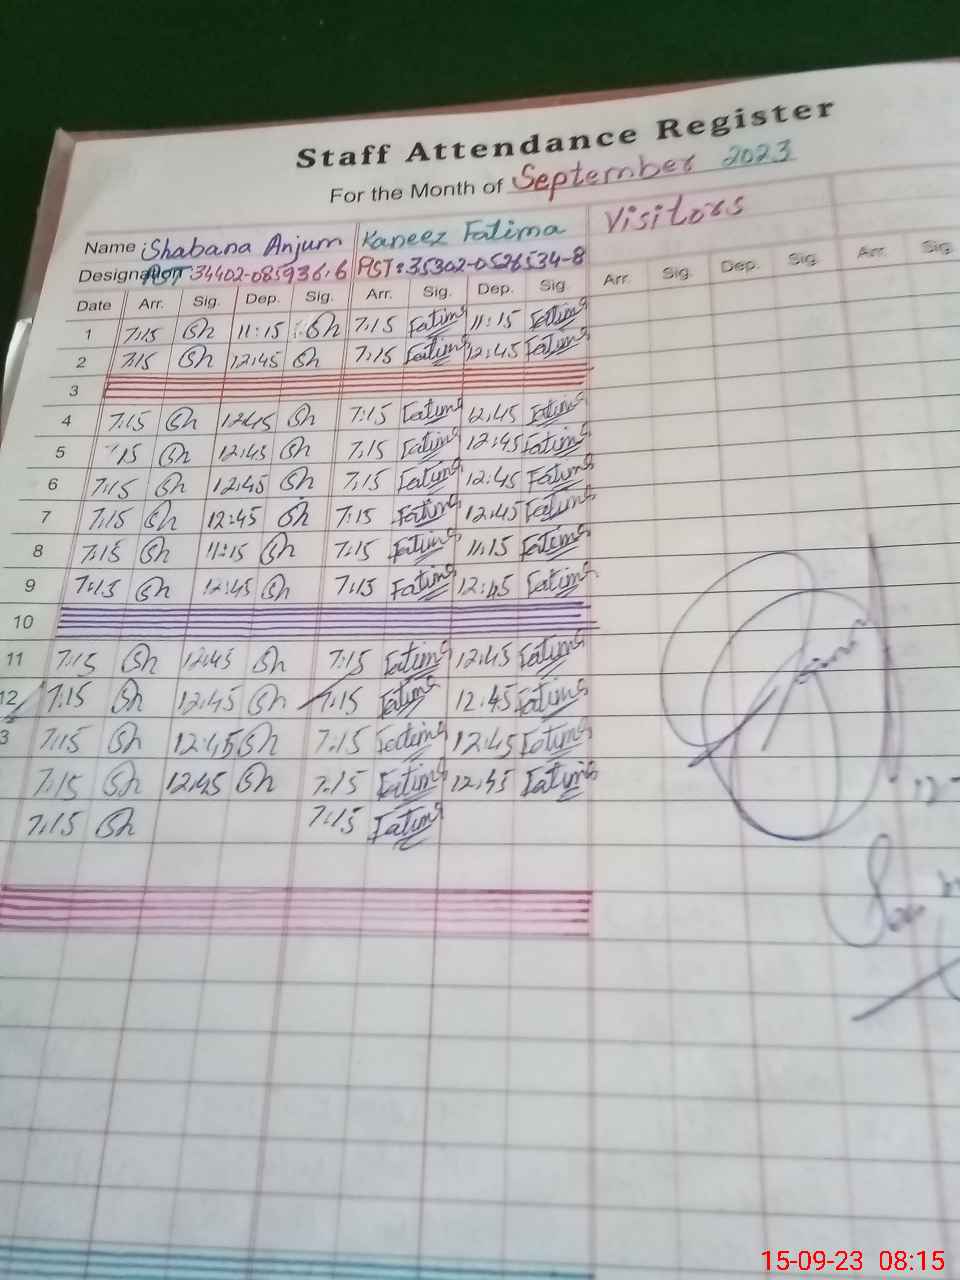 Staff Attendance Register
For the Month of September 2023
Name : Shabana Anjum Kaneez Fatima Visitors
Designation PST: 35302-0526534-8
Date Arr. Sig. Dep. Sig. Arr. Sig. Dep. Sig. Arr. Sig. Dep. Sig. Arr. Sig.
1 7:15 Sh 11:15 Sh 7:15 Fatima 11:15 Fatima
2 7:15 Sh 12:45 Sh 7:15 Fatima 12:45 Fatima
3
4 7:15 Sh 12:45 Sh 7:15 Fatima 12:45 Fatima
5 15 Sh 12:45 Sh 7:15 Fatima 12:45 Fatima
6 7:15 Sh 12:45 Sh 7:15 Fatima 12:45 Fatima
7 7:15 Sh 12:45 Sh 7:15 Fatima 12:45 Fatima
8 7:15 Sh 11:15 Sh 7:15 Fatima 11:15 Fatima
9 7:15 Sh 12:45 Sh 7:15 Fatima 12:45 Fatima
10
11 7:15 Sh 12:45 Sh 7:15 Fatima 12:45 Fatima
12 7:15 Sh 12:45 Sh 7:15 Fatima 12:45 Fatima
3 7:15 Sh 12:45 Sh 7:15 Fatima 12:45 Fatima
7:15 Sh 12:45 Sh 7:15 Fatima 12:45 Fatima
7:15 Sh 7:15 Fatima
15-09-23 08:15